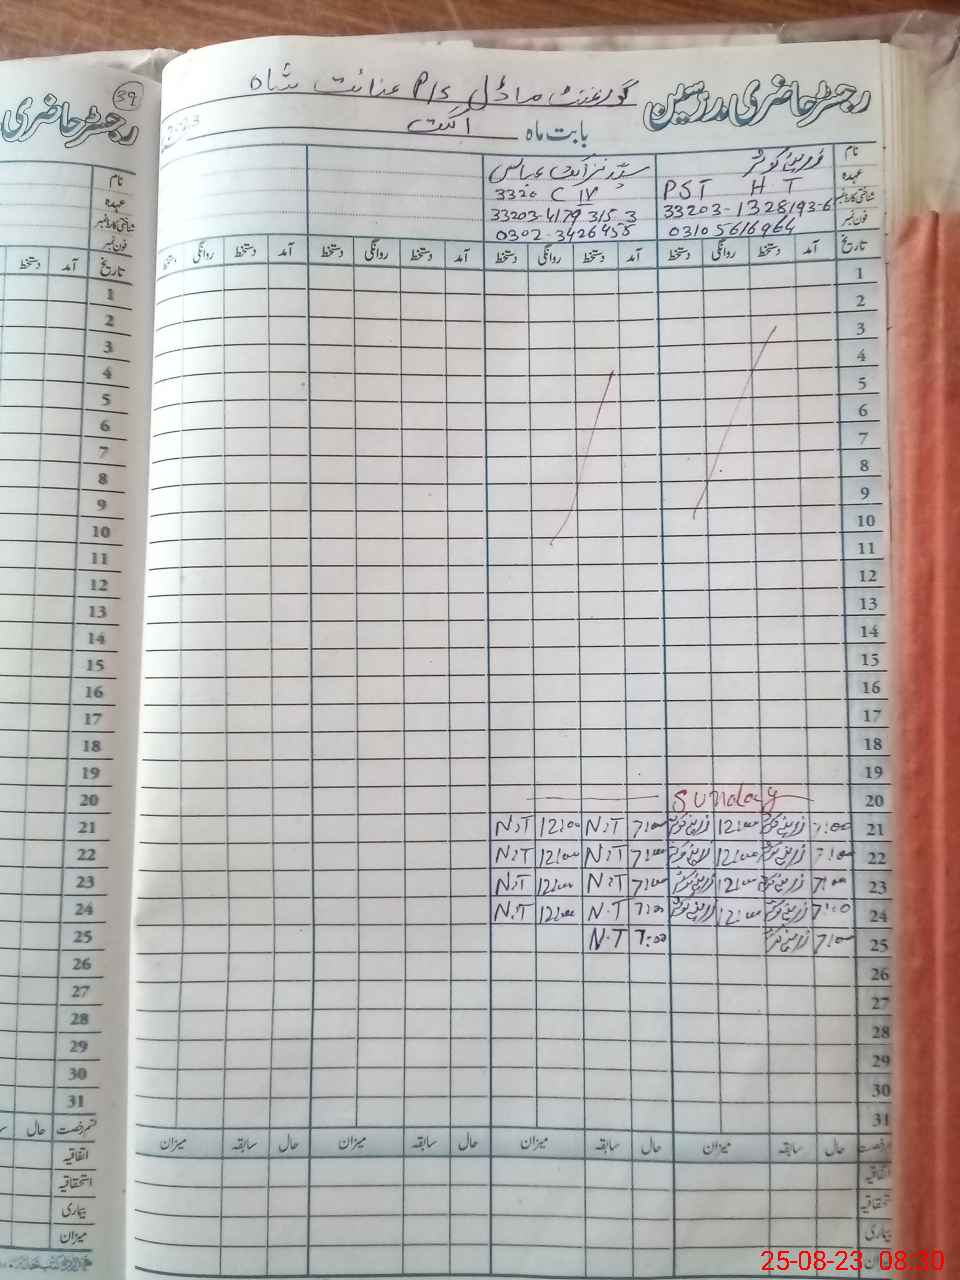 39
رجسٹر حاضری
رجسٹر حاضری مدرسین گورنمنٹ ماڈل P/S عنائت شاہ
بابت ماہ اگست 2023
نام
عہدہ PST HT
شناختی کارڈ نمبر 33203-1328193-6 33203-4179315 3
فون نمبر 03105616964 0302-3426458
تاریخ آمد دستخط روانگی دستخط آمد دستخط روانگی دستخط آمد دستخط روانگی دستخط آمد دستخط روانگی دستخط
1
2
3
4
5
6
7
8
9
10
11
12
13
14
15
16
17
18
19
20 Sunday
21 7:00 12:00 7:00 N.T 12:00 N.T
22 7:00 12:00 7:00 N.T 12:00 N.T
23 7:00 12:00 7:00 N.T 12:00 N.T
24 7:00 12:00 7:00 N.T 12:00 N.T
25 7:00 7:00 N.T
26
27
28
29
30
31
حال سابقہ میزان حال سابقہ میزان حال سابقہ میزان حال سابقہ میزان
اتفاقیہ
استحقاقیہ
بیماری
میزان
نام
عہدہ
شناختی کارڈ نمبر
فون نمبر
تاریخ آمد دستخط
1
2
3
4
5
6
7
8
9
10
11
12
13
14
15
16
17
18
19
20
21
22
23
24
25
26
27
28
29
30
31
قسم رخصت حال
اتفاقیہ
استحقاقیہ
بیماری
میزان
25-08-23 08:30